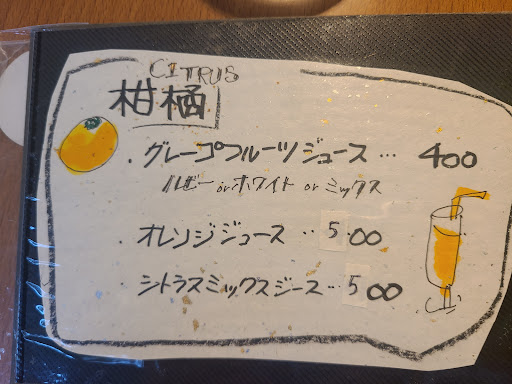 CITRUS
柑橘
・グレープフルーツジュース… 400
ルビー or ホワイト or ミックス
・オレンジジュース ‥500
・シトラスミックスジース…500